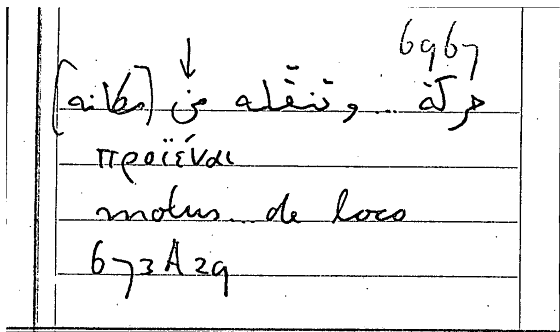 6967
حركة ... وتنقله من (مكانه)
προϊέναι
motus .. de loco
673A29